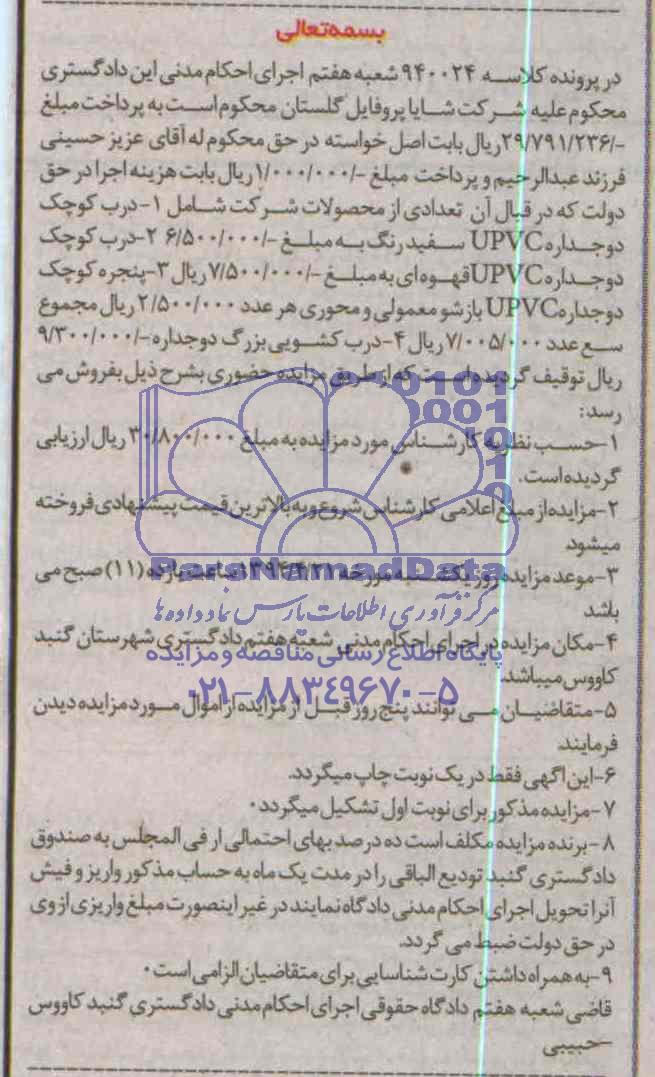 بسمه‌تعالی
در پرونده کلاسه ۹۴۰۰۲۴ شعبه هفتم اجرای احکام مدنی این دادگستری
محکوم علیه شرکت شایا پروفایل گلستان محکوم است به پرداخت مبلغ
۲۹/۷۹۱/۲۳۶/- ریال بابت اصل خواسته در حق محکوم له آقای عزیز حسینی
فرزند عبدالرحیم و پرداخت مبلغ ۱/۰۰۰/۰۰۰/- ریال بابت هزینه اجرا در حق
دولت که در قبال آن تعدادی از محصولات شرکت شامل ۱-درب کوچک
دوجداره UPVC سفید رنگ به مبلغ ۶/۵۰۰/۰۰۰/- ۲-درب کوچک
دوجداره UPVC قهوه‌ای به مبلغ ۷/۵۰۰/۰۰۰/- ریال ۳-پنجره کوچک
دوجداره UPVC بازشو معمولی و محوری هر عدد ۲/۵۰۰/۰۰۰ ریال مجموع
سع عدد ۷/۰۰۵/۰۰۰ ریال ۴-درب کشویی بزرگ دوجداره ۹/۳۰۰/۰۰۰/-
ریال توقیف گردیده است که از طریق مزایده حضوری بشرح ذیل بفروش می
رسد:
۱-حسب نظریه کارشناس مورد مزایده به مبلغ ۳۰/۸۰۰/۰۰۰ ریال ارزیابی
گردیده است.
۲-مزایده از مبلغ اعلامی کارشناس شروع و به بالاترین قیمت پیشنهادی فروخته
میشود
۳-موعد مزایده روز یکشنبه مورخه ۱۳۹۴/۴/۲۱ ساعت یازده (۱۱) صبح می
باشد
۴-مکان مزایده در اجرای احکام مدنی شعبه هفتم دادگستری شهرستان گنبد
کاووس میباشد.
۵-متقاضیان می توانند پنج روز قبل از مزایده از اموال مورد مزایده دیدن
فرمایند.
۶-این اگهی فقط در یک نوبت چاپ میگردد.
۷-مزایده مذکور برای نوبت اول تشکیل میگردد.
۸-برنده مزایده مکلف است ده درصد بهای احتمالی ار فی المجلس به صندوق
دادگستری گنبد تودیع الباقی را در مدت یک ماه به حساب مذکور واریز و فیش
آنرا تحویل اجرای احکام مدنی دادگاه نمایند در غیر اینصورت مبلغ واریزی از وی
در حق دولت ضبط می گردد.
۹-به همراه داشتن کارت شناسایی برای متقاضیان الزامی است.
قاضی شعبه هفتم دادگاه حقوقی اجرای احکام مدنی دادگستری گنبد کاووس
-حبیبی
ParsNamadData
مرکز فرآوری اطلاعات پارس نماد داده‌ها
پایگاه اطلاع رسانی مناقصه و مزایده
۰۲۱-۸۸۳۴۹۶۷۰-۵